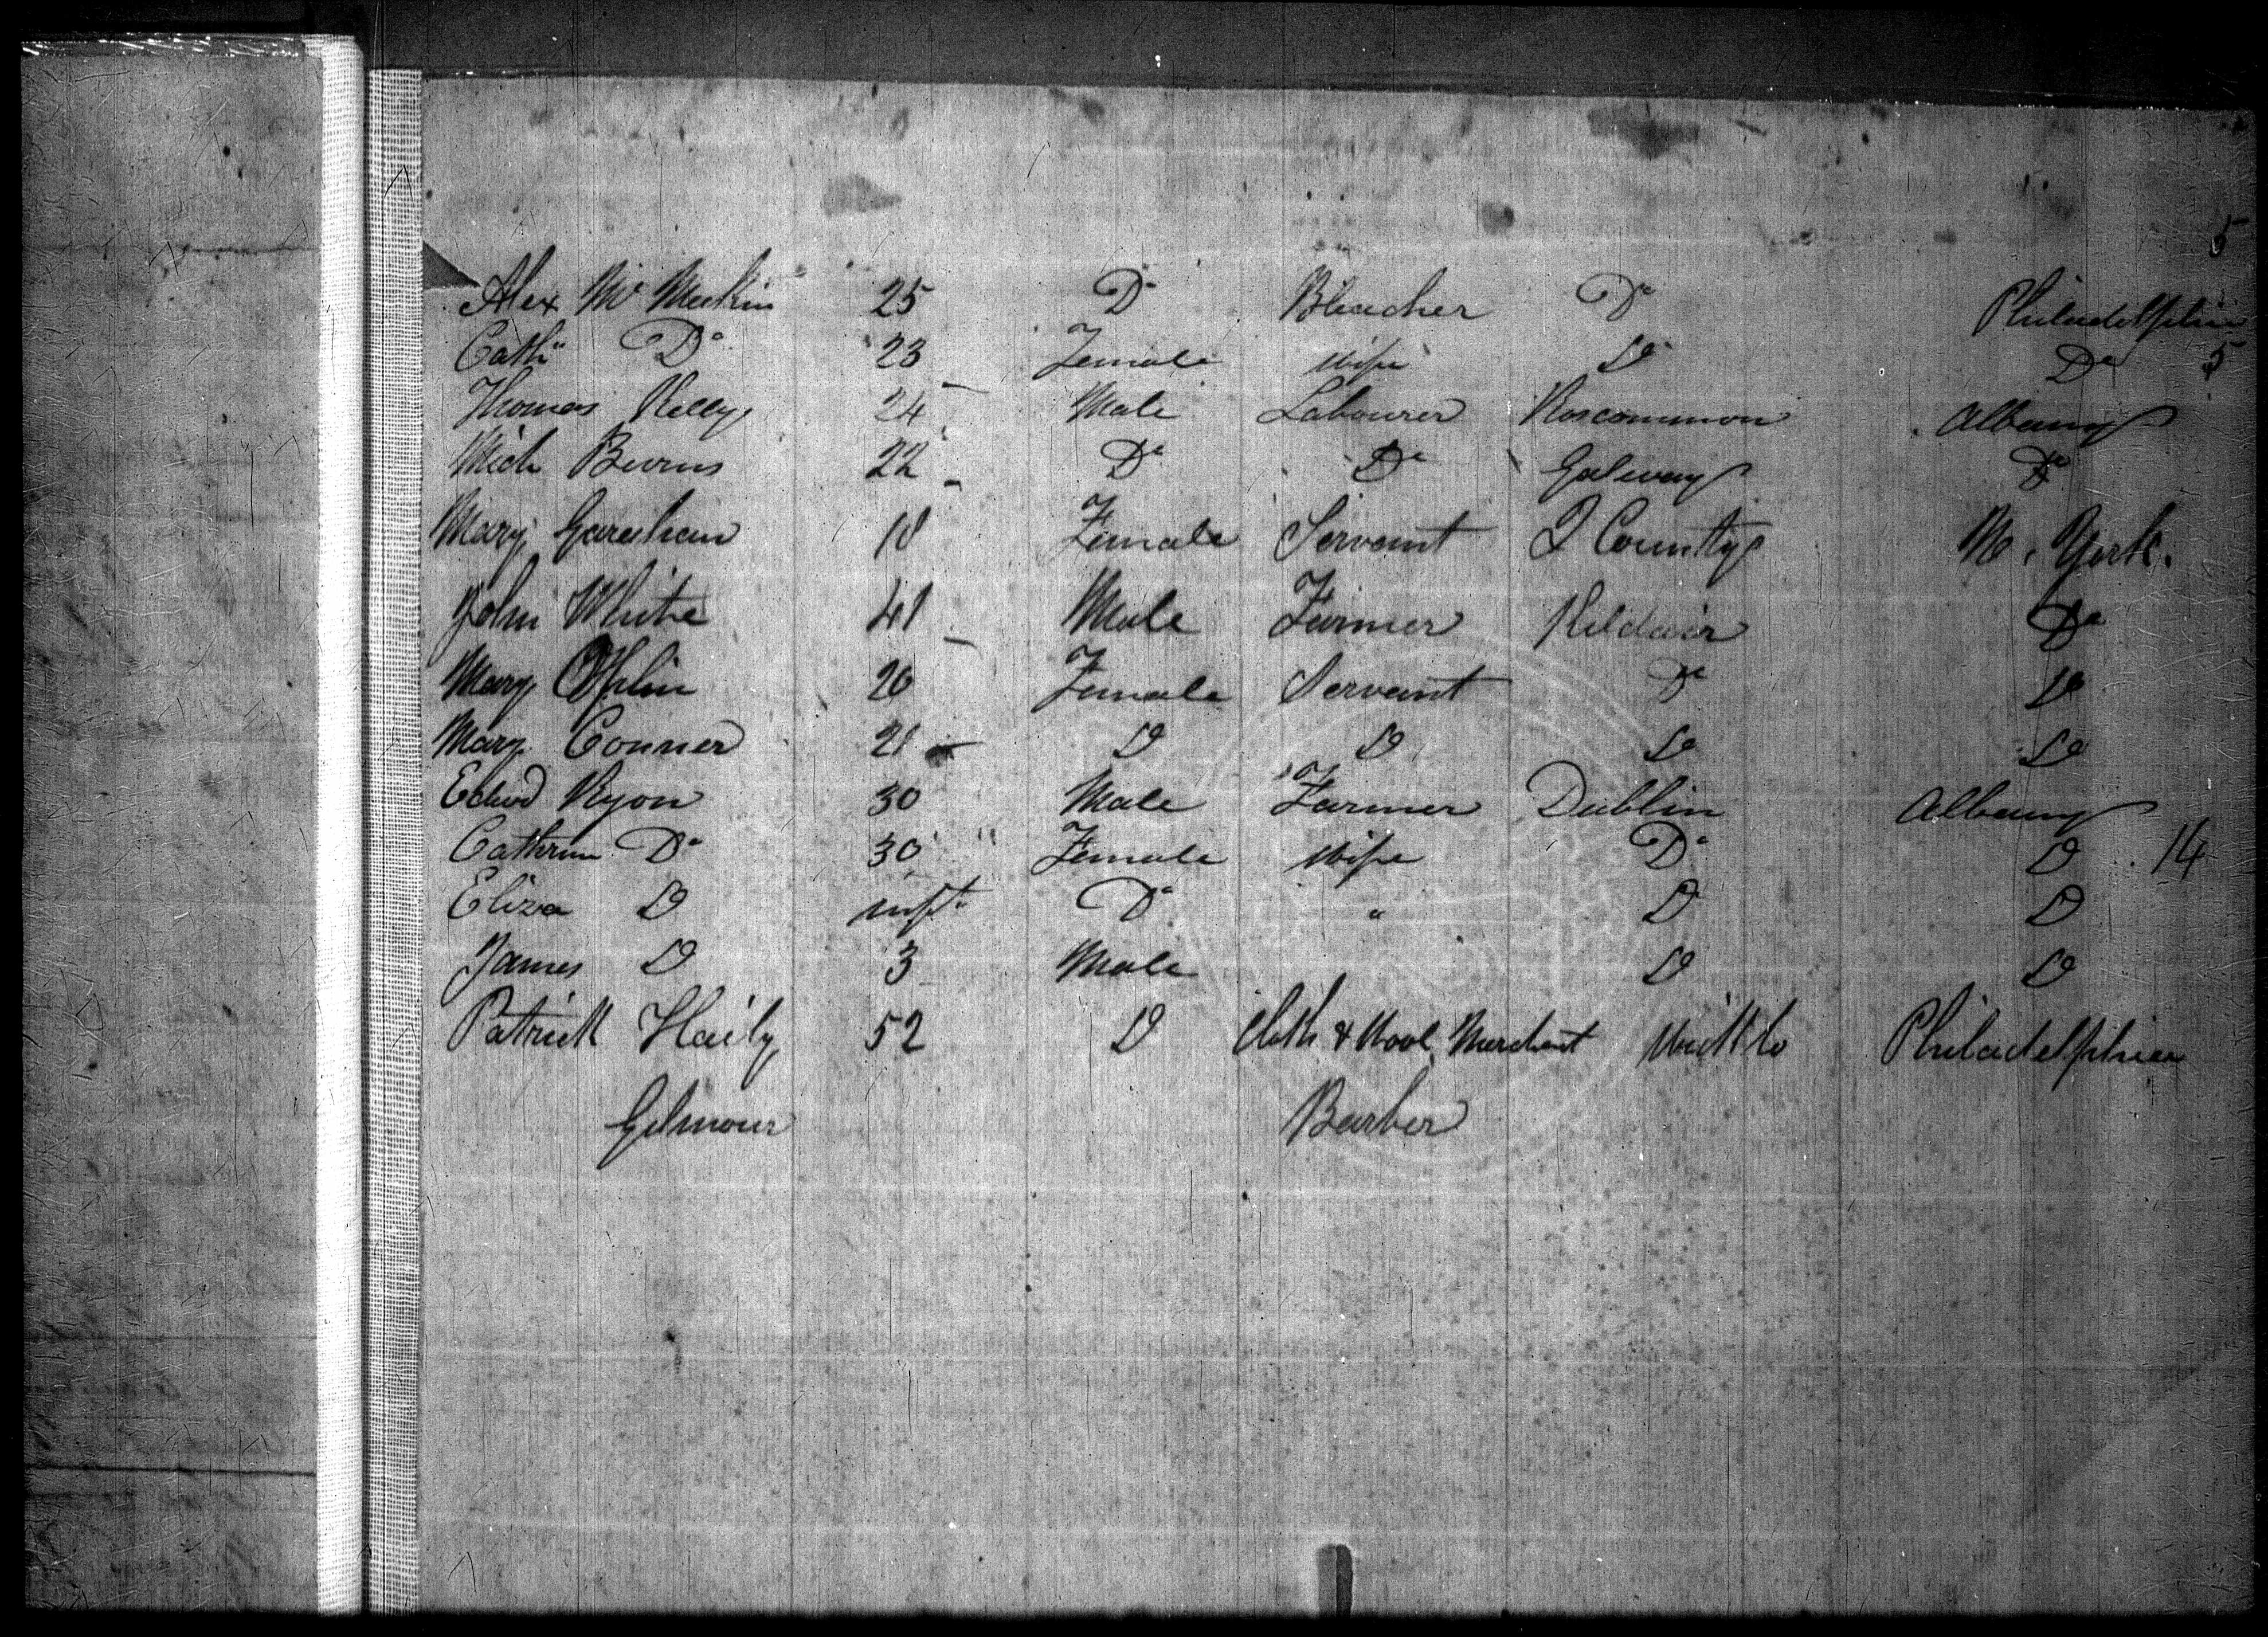 5
Alex Mc Meekin 25 Do Bleacher Do Philadelphia
Cathn Do 23 Female wife Do Do 5
Thomas Kelly 24 Male Labourer Roscommon Albany
Mich Burns 22 Do Do Galway Do
Mary 18 Female Servant Q County N. York.
John White 41 Male Farmer Kildair Do
Mary 20 Female Servant Do Do
Mary Conner 21 Do Do Do Do
Edwd Ryon 30 Male Farmer Dublin Albany
Cathrin Do 30 Female wife Do Do 14
Eliza Do inft Do " Do Do
James Do 3 Male Do Do
Patrick Haily 52 Do Cloth & Wool Merchant Philadelphia
Gilmour Barber